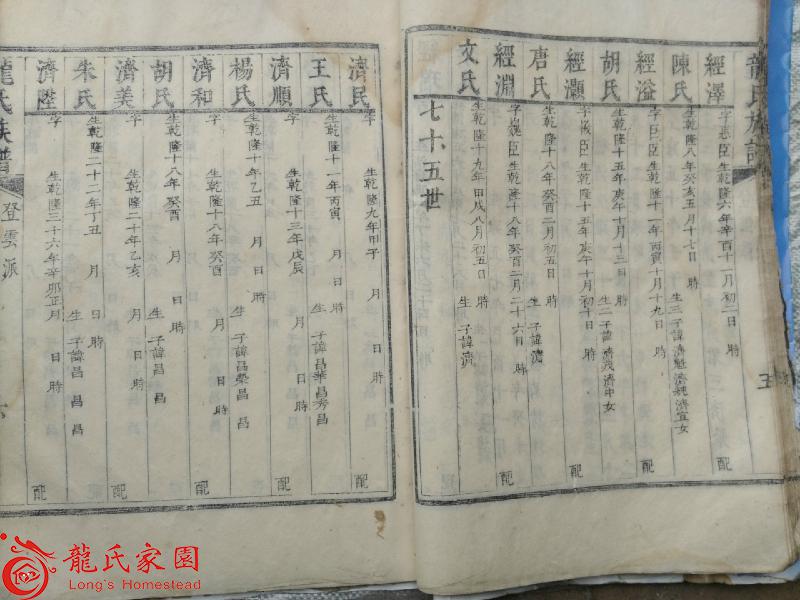 龍氏族譜
五
經澤 字惠臣生乾隆六年辛酉十一月初二日 時 配
陳氏 生乾隆八年癸亥五月十七日 時 生三子諱濟魁濟純濟宜女
經溢 字巨臣生乾隆十一年丙寅十月十九日 時 配
胡氏 生乾隆十五年庚午十月十三日 時 生二子諱濟茂濟中女
經灝 字 臣生乾隆十五年庚午十月初十日 時 配
唐氏 生乾隆十八年癸酉二月初五日 時 生 子諱濟
經淵 字巍臣生乾隆十八年癸酉二月二十六日 時 配
文氏 生乾隆十九年甲戌八月初五日 時 生 子諱濟
七十五世
濟民 字 生乾隆九年甲子 月 日 時 配
王氏 生乾隆十一年丙寅 月 日 時 生 子諱昌華昌秀昌
濟順 字 生乾隆十三年戊辰 月 日 時 配
楊氏 生乾隆十年乙丑 月 日 時 生 子諱昌榮昌 昌
濟和 字 生乾隆十八年癸酉 月 日 時 配
胡氏 生乾隆十八年癸酉 月 日 時 生 子諱昌 昌
濟美 字 生乾隆二十年乙亥 月 日 時 配
朱氏 生乾隆二十二年丁丑 月 日 時 生 子諱昌 昌
濟陞 字 生乾隆三十六年辛卯正月 日 時 配
龍氏族譜 登雲派
龍氏家園
Long's Homestead